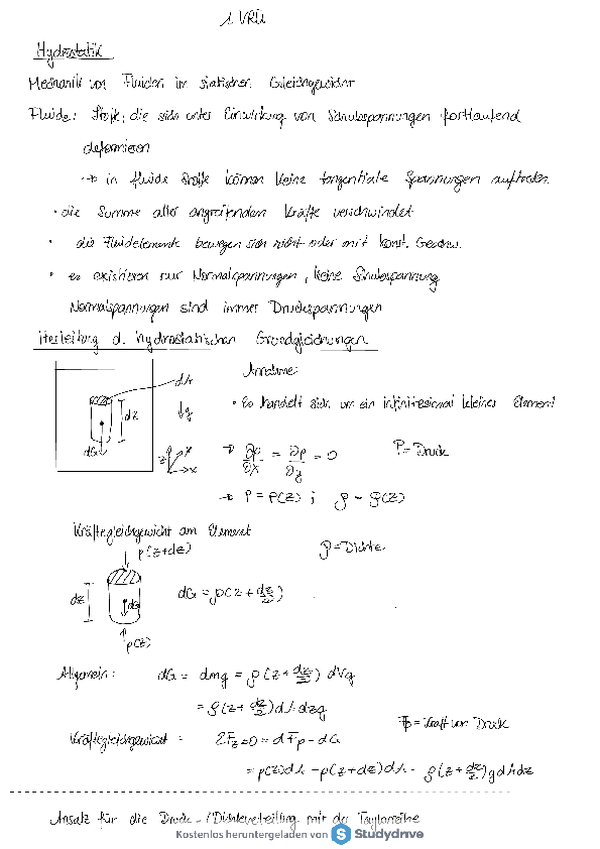 1. VRÜ
Hydrostatik
Mechanik von Fluiden im statischen Gleichgewicht
Fluide: Stoffe, die sich unter Einwirkung von Schubspannungen fortlaufend
deformieren
→ in fluide Stoffe können keine tangentiale Spannungen auftreten.
• die Summe aller angreifenden Kräfte verschwindet
• die Fluidelemente bewegen sich nicht oder mit konst. Geschw.
• es existieren nur Normalspannungen, keine Schubspannung
Normalspannungen sind immer Druckspannungen
Herleitung d. hydrostatischen Grundgleichungen
Annahme:
dA
• Es handelt sich um ein infinitesimal kleines Element
dz
↓g
dG
z y x
→ ∂p/∂x = ∂p/∂y = 0
P = Druck
→ P = P(z) ; ρ = ρ(z)
Kräftegleichgewicht am Element
p(z+dz)
ρ = Dichte
dz
dG
dG = ρ(z + dz/2)
p(z)
Allgemein: dG = dmg = ρ(z + dz/2) dVg
= ρ(z + dz/2) dA dz g
Fp = Kraft von Druck
Kräftegleichgewicht = ΣFz = 0 = dFp - dG
= p(z)dA - p(z+dz)dA - ρ(z + dz/2) g dA dz
Ansatz für die Druck-/Dichteverteilung mit der Taylorreihe
Kostenlos heruntergeladen von S Studydrive